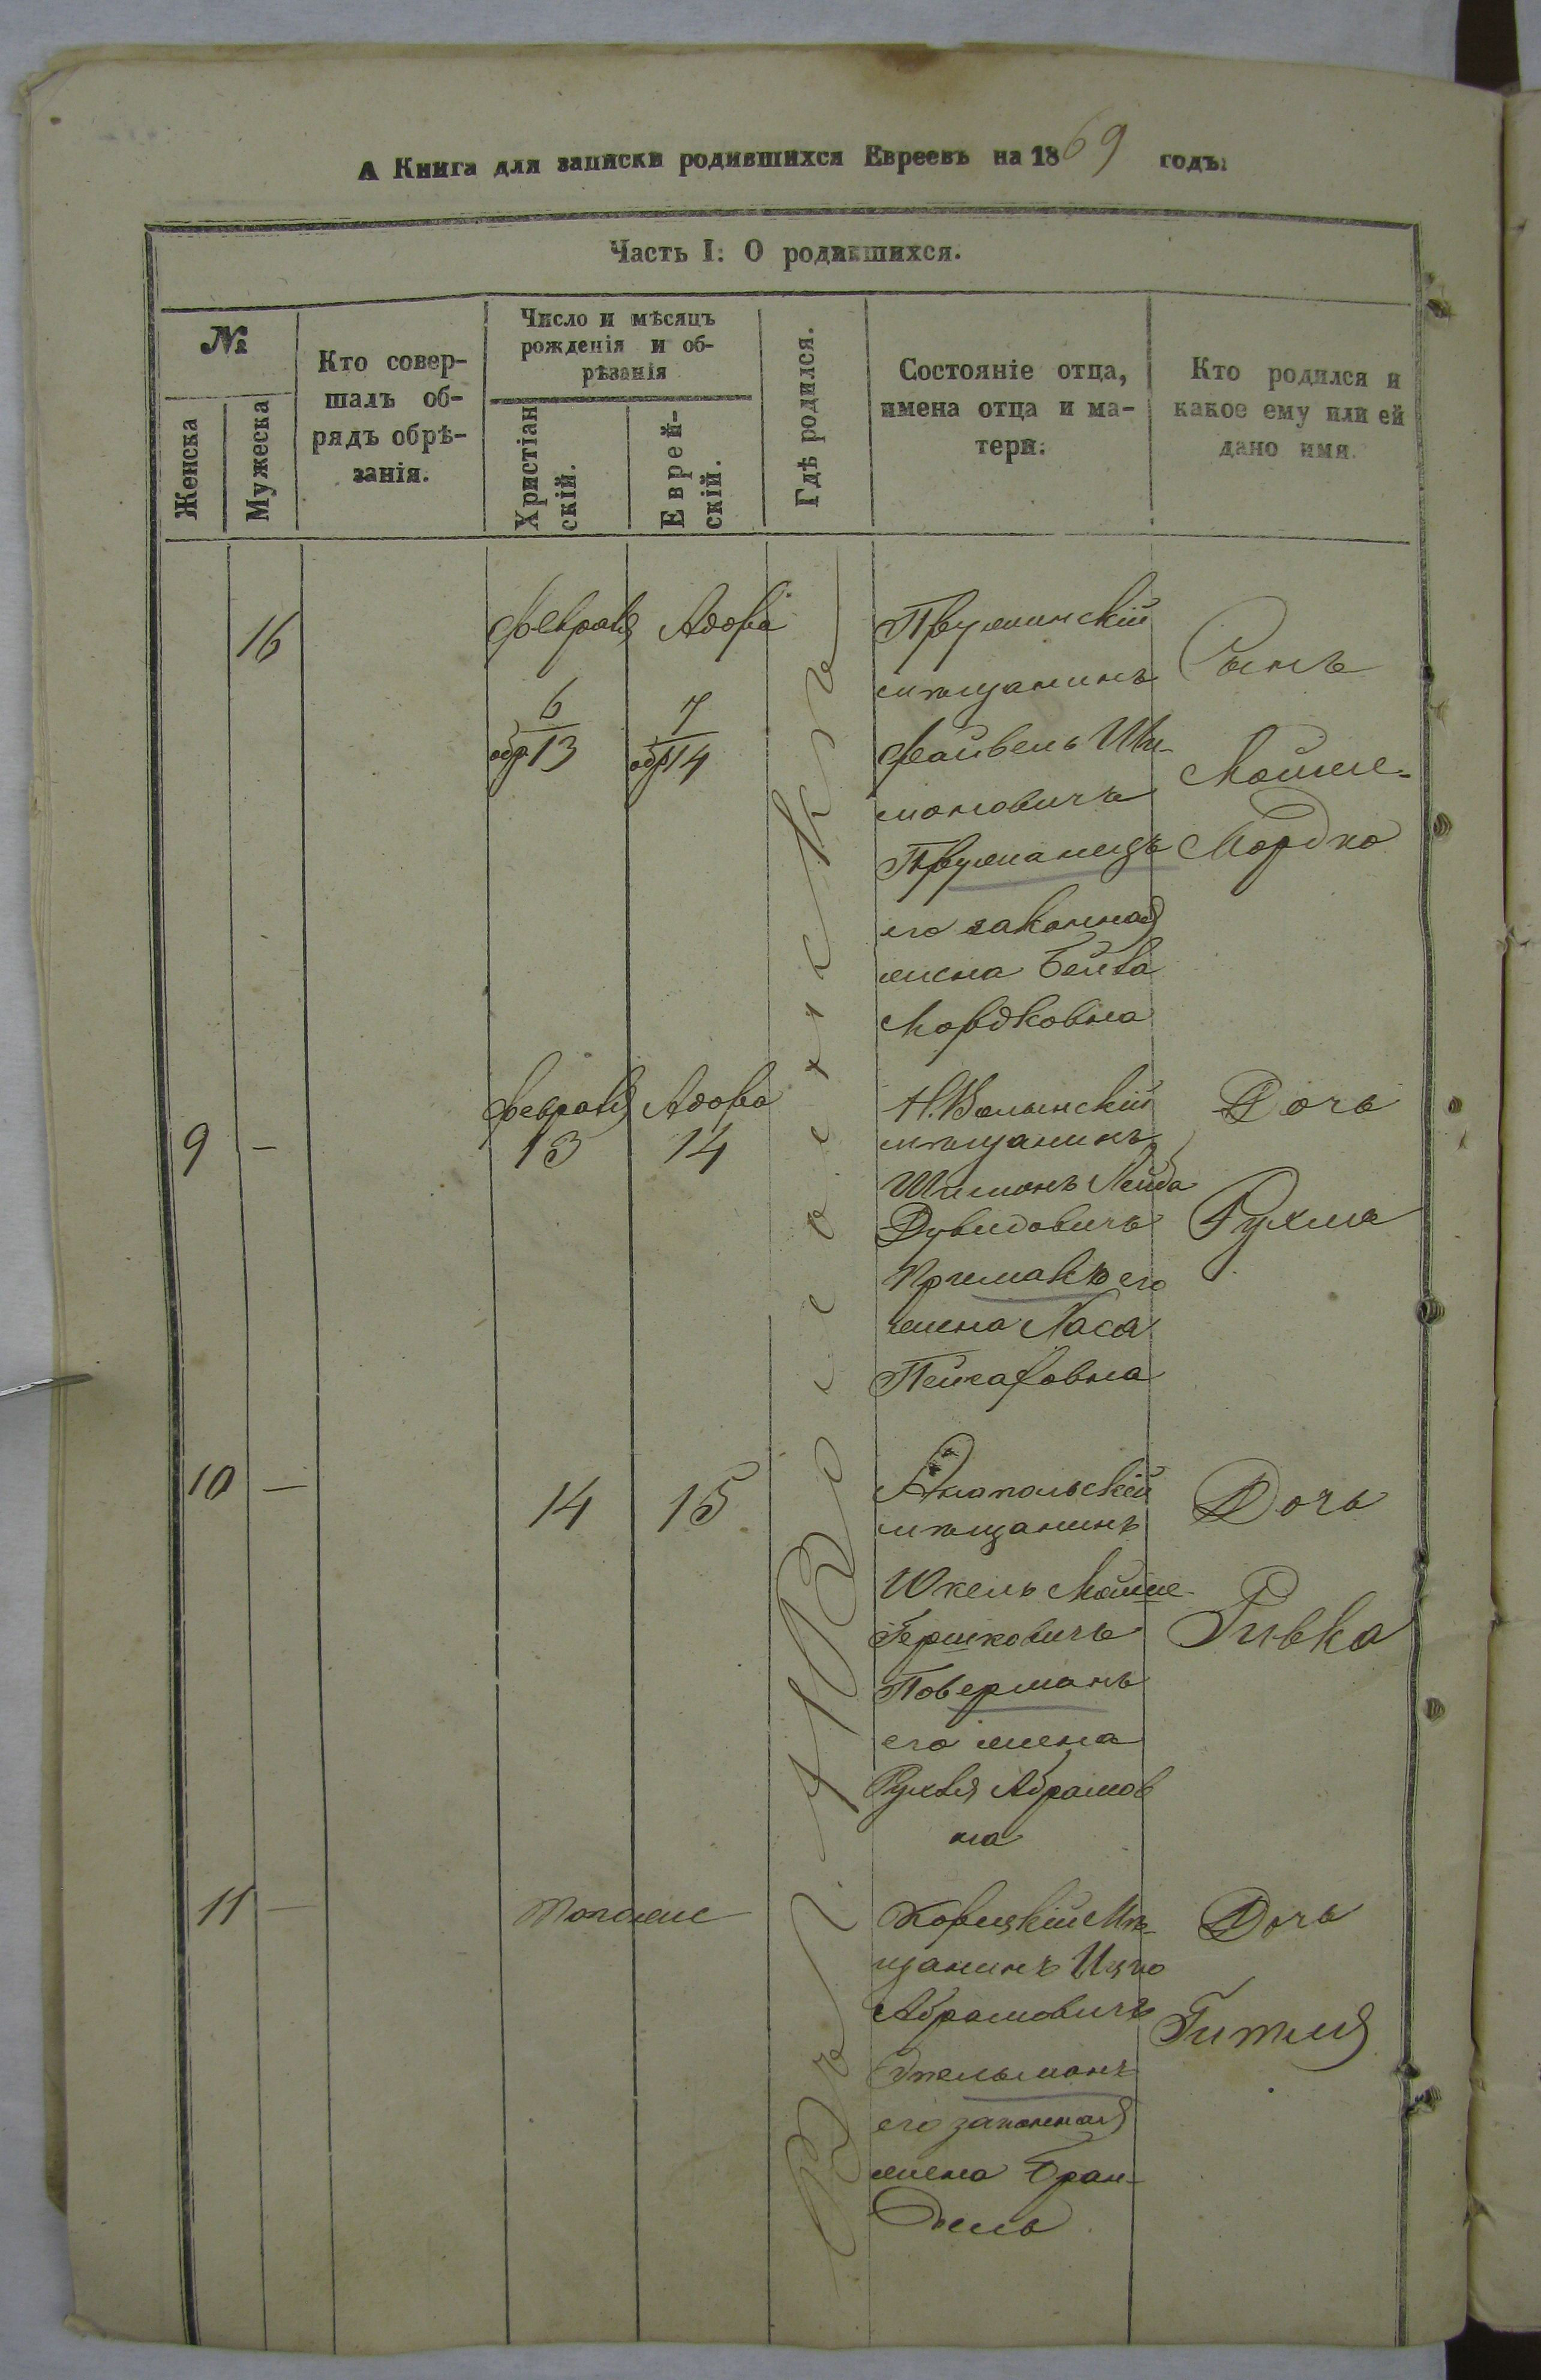 А Книга для записки родившихся Евреевъ на 1869 годъ:
Часть I: О родившихся.
№
Женска
Мужеска
Кто совер-
шалъ об-
рядъ обрѣ-
занія.
Число и мѣсяцъ
рожденія и об-
рѣзанія
Христіан
скій.
Еврей-
скій.
Гдѣ родился.
Состояніе отца,
имена отца и ма-
тери:
Кто родился и
какое ему или ей
дано имя.
16
Февраля
6
обр. 13
Адора
7
обр 14
мѣщанинъ
Файвель Ши-
моновичъ
его законная
жена Бейла
Мордковна
Сынъ
Мойше-
Мордко
9 -
Февраля
13
Адора
14
Н.Волынскій
мѣщанинъ
Шимонъ Лейба
Дувидовичъ
Примакъ его
жена Хася
Дочь
Рухля
10 -
14
15
Анапольскій
мѣщанинъ
Мойше-
Гершковичъ
Поверманъ
его жена
Рухля Абрамов
на
Дочь
Ривка
11 -
Тогоже
Корецкій Мѣ-
щанинъ Ицко
Абрамовичъ
его законная
жена Бран-
дель
Дочь
Гитля